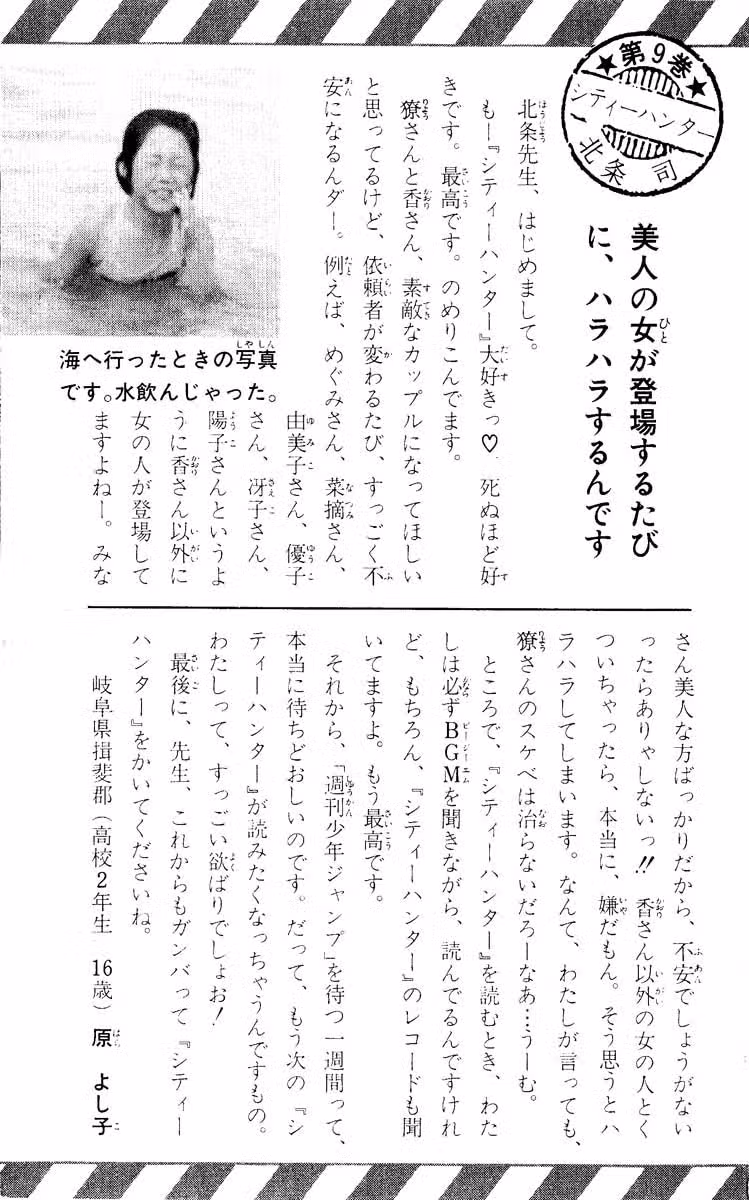 ★第9巻★
シティーハンター
北条 司
美人の女が登場するたび
に、ハラハラするんです
北条先生、はじめまして。
もー『シティーハンター』大好きっ♡ 死ぬほど好
きです。最高です。のめりこんでます。
獠さんと香さん、素敵なカップルになってほしい
と思ってるけど、依頼者が変わるたび、すっごく不
安になるんダー。例えば、めぐみさん、菜摘さん、
由美子さん、優子
さん、冴子さん、
陽子さんというよ
うに香さん以外に
女の人が登場して
ますよねー。みな
海へ行ったときの写真
です。水飲んじゃった。
さん美人な方ばっかりだから、不安でしょうがない
ったらありゃしないっ!! 香さん以外の女の人とく
ついちゃったら、本当に、嫌だもん。そう思うとハ
ラハラしてしまいます。なんて、わたしが言っても、
獠さんのスケベは治らないだろーなあ…うーむ。
ところで、『シティーハンター』を読むとき、わた
しは必ずBGMを聞きながら、読んでるんですけれ
ど、もちろん、『シティーハンター』のレコードも聞
いてますよ。もう最高です。
それから、「週刊少年ジャンプ」を待つ一週間って、
本当に待ちどおしいのです。だって、もう次の『シ
ティーハンター』が読みたくなっちゃうんですもの。
わたしって、すっごい欲ばりでしょお!
最後に、先生、これからもガンバって『シティー
ハンター』をかいてくださいね。
岐阜県揖斐郡(高校2年生 16歳)原 よし子